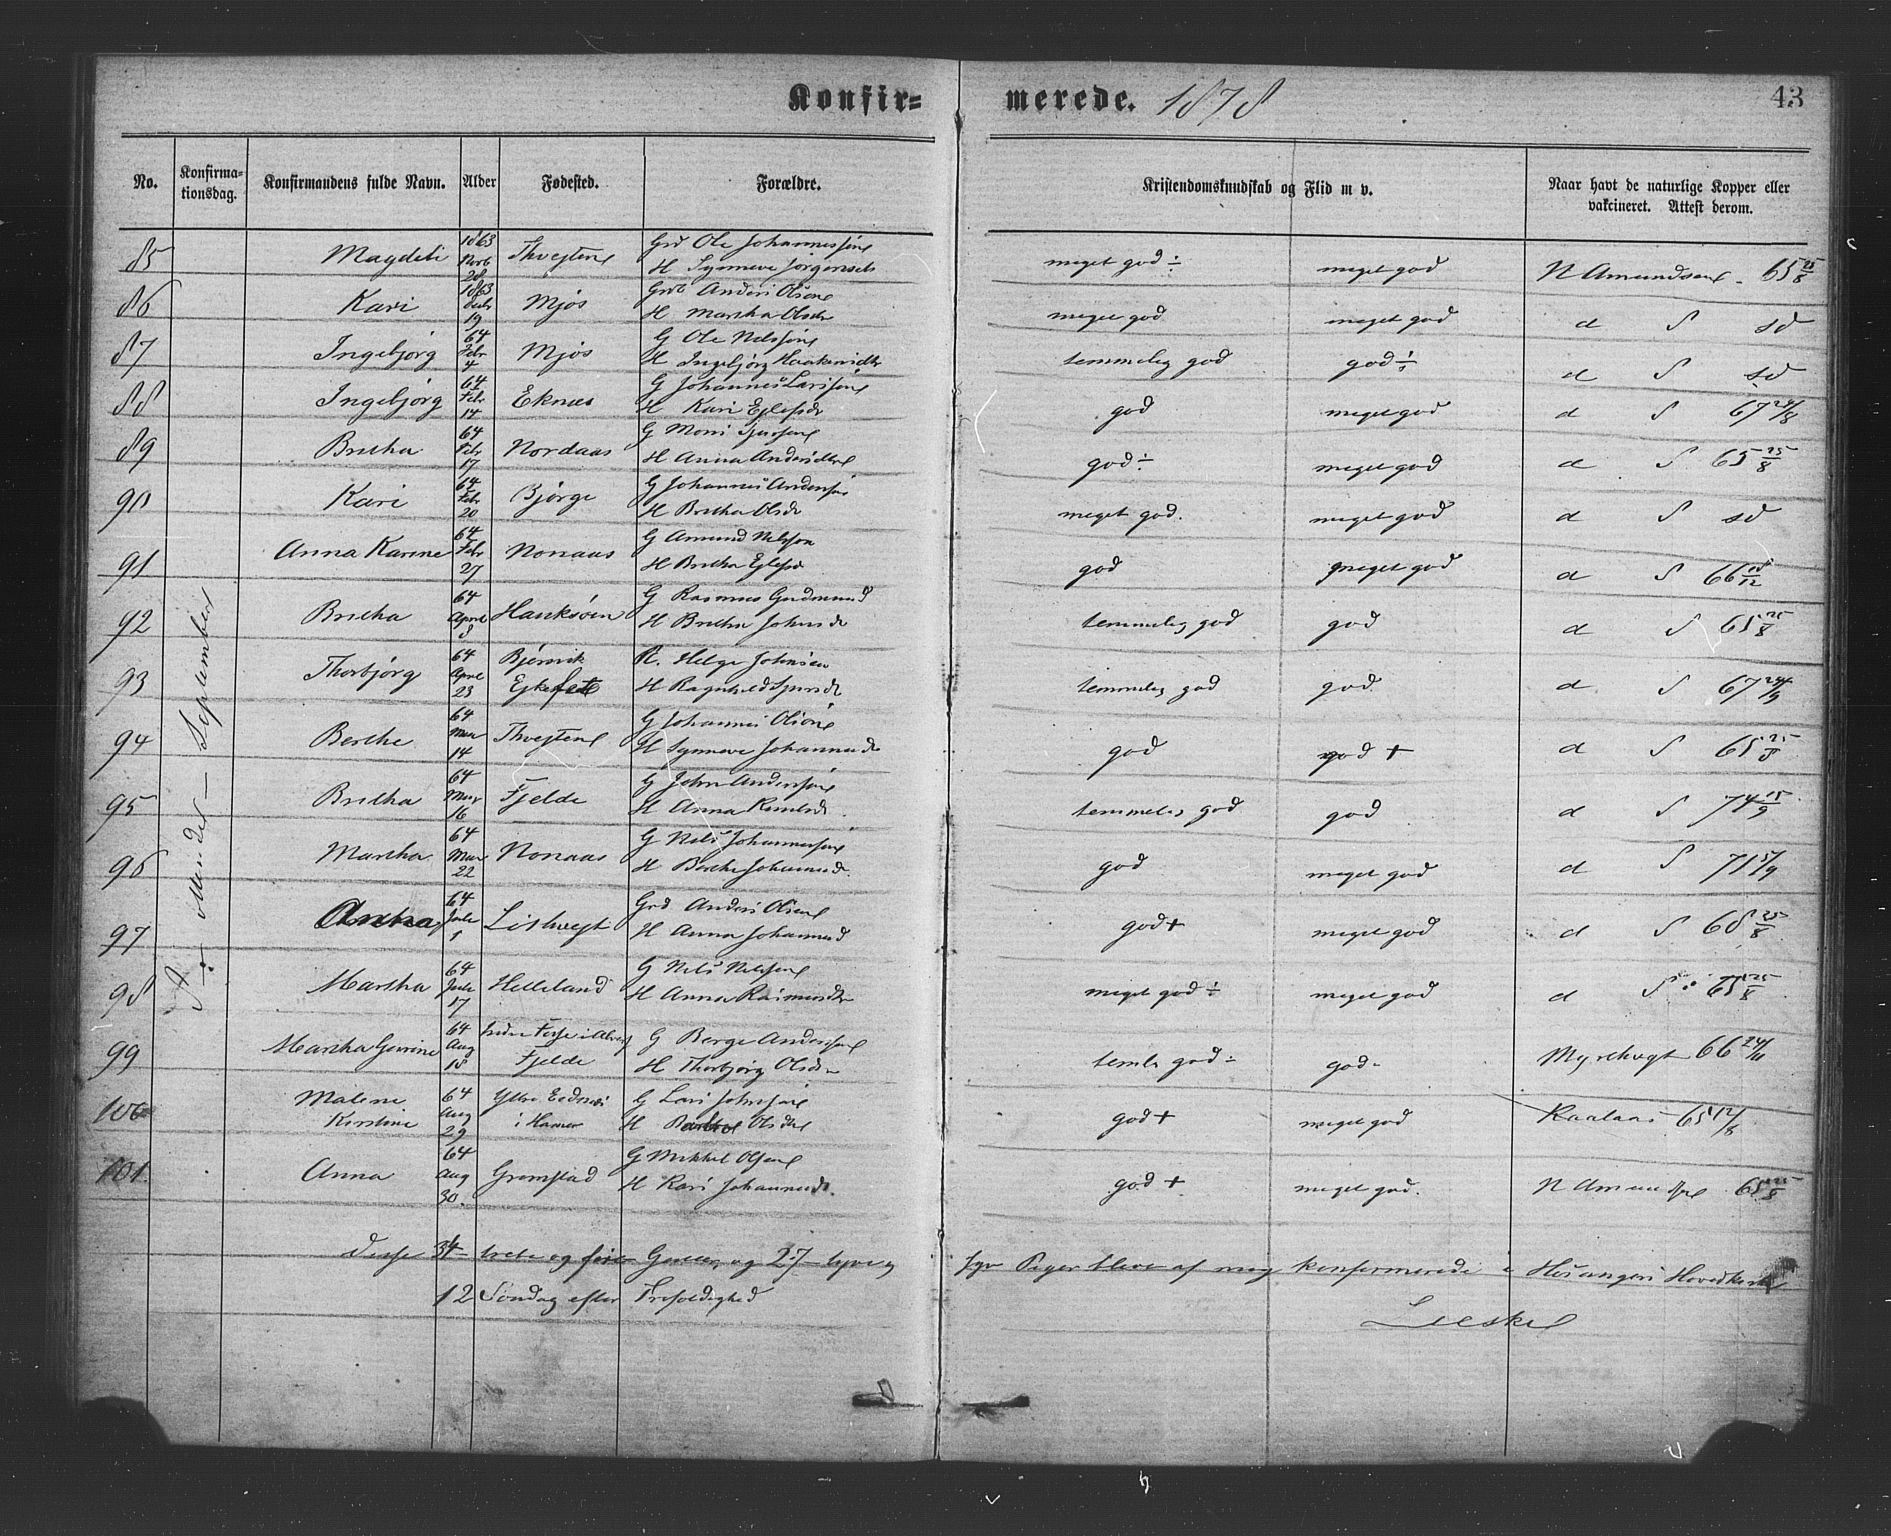 Konfir= merede. 1878 43
No. Konfirma- tionsdag. Konfirmandens fulde Navn. Alder Fødested. Forældre. Kristendomskundskab og Flid m v. Naar havt de naturlige Kopper eller vakcineret. Attest derom.
85 Magdeli 1863 Novb 28 Thvejten Grd Ole Johannessøn H Synneve meget god ÷ meget god N Amundsen 65 25/8
86 Kari 1863 Decbr 19 Mjøs Grd Anders Olsen H Martha Olsdr meget god meget god d S sd
87 Ingebjørg 64 Febr 4 Mjøs G Ole Nilssøn H Ingebjørg temmelig god god ÷ d S sd
88 Ingebjørg 64 Febr 14 Eknes G Johannes Larssøn H Kari meget god god d S 67 24/8
89 Britha 64 Febr 17 Nordaas G Mons H Anna Andersdtr god ÷ meget god d S 65 25/8
90 Kari 64 Febr 20 Bjørge G Johannes Anderssøn H Britha Olsdr meget god. meget god d S sd
91 Anna Karine 64 Febr 27 Nonaas G Amund Nilsson H Britha god meget god d S 66
92 Britha 64 April 8 Hauksøen G Rasmus Gudmund H Britha Johnsdr temmelig god god d S 65 25/8
93 Thorbjørg 64 April 23 Bjørsvik H. Helge Johnsen H Ragnhild temmelig god god d S 67 24/9
94 Berthe 64 Mai 14 Thvejten G Johannes Olsøn H Synneve Johannesdr god god + d S 65 25/8
95 Britha 64 Mai 16 Fjelde G John Anderssøn H Anna temmelig god god d S 74 15/9
96 Martha 64 Mai 22 Nonaas G Nils Johannessøn H Berthe Johannesdr. god meget god d S 71 5/9
97 64 Juli 1 Grd Anders Olsen H Anna Johannesd god + meget god d S 68 25/8
98 Martha 64 Juli 17 Helleland G Nils Nilssøn H Anna Rasmusdtr meget god ÷ meget god d S 65 25/8
99 Martha 64 Aug 18 Fjelde G Berge Anderssøn H Thorbjørg Olsdr god ÷ god 66 24/10
100 Malene Kirstine 64 Aug 29 Ytre i Hamre G Lars Johnssøn H Olsdtr god + meget god 65 12/8
101. Anna 64 Aug 30. Gremstad G Mikkel Olssøn H Kari Johannesdr. god + meget god. N Amundssøn 65 25/8
S: Mindet – September
Disse 34 trete og fire Gutter og 27 tyve og syv Piger bleve af mig konfirmerede i Hosangers Hovedkirke
12 Søndag efter Trefoldighed